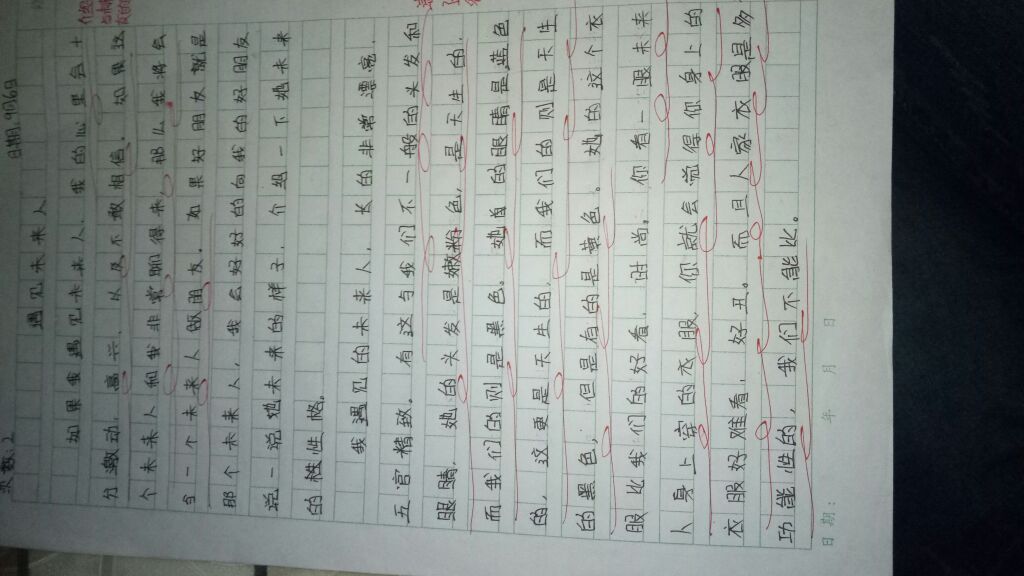 日期:9月6日
遇见未来人
如果我遇见未来人,我的心里会十
分激动,高兴,以及不敢相信。如果
个未来人和我非常聊得来,那么我将会
与一个未来人做朋友。如果好朋友就是
那个未来人,我会好好的向我的好朋友
说一说她未来的样子,介绍一下她未来
的性格。
我遇见的未来人,长的非常漂亮,
五官精致。有这与我们不一般的头发和
眼睛,她的头发是嫩粉色,是天生的,
而我们的则是黑色。她的眼睛是蓝色
的,这更是天生的,而我们的则是天生
的黑色,但是有的是黄色。她的这个衣
服比我们的好看,时尚。你看一眼未来
人身上穿的衣服,你就会觉得你身上的
衣服好难看,好丑。而且人家衣服是多
功能性的,我们不能比。
日期: 年 月 日